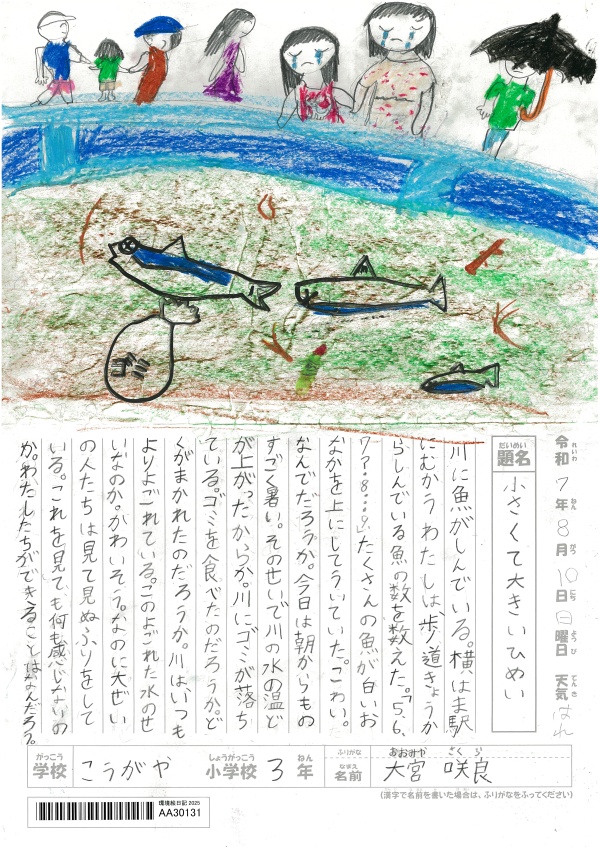 令和7年8月10日日曜日 天気 はれ
れいわ ねん がつ にち ようび てんき
だいめい
題名 小さくて大きいひめい
川に魚がしんでいる。横はま駅
にむかうわたしは、歩道きょうか
らしんでいる魚の数を数えた。「5、6、
7?…8…9」たくさんの魚が白いお
なかを上にしてういていた。こわい。
なんでだろうか。今日は朝からもの
すごく暑い。そのせいで川の水の温ど
が上がったからか。川にゴミが落ち
ている。ゴミを食べたのだろうか。ど
くがまかれたのだろうか。川は、いつも
よりよごれている。このよごれた水のせ
いなのか。かわいそう。なのに大ぜい
の人たちは見て見ぬふりをして
いる。これを見ても何も感じないの
か。わたしたちができることはなんだろう。
がっこう しょうがっこう ねん ふりがな おおみや さくら
学校 こうがや 小学校 3年 なまえ 名前 大宮 咲良
(漢字で名前を書いた場合は、ふりがなをふってください)
環境絵日記 2025
AA30131